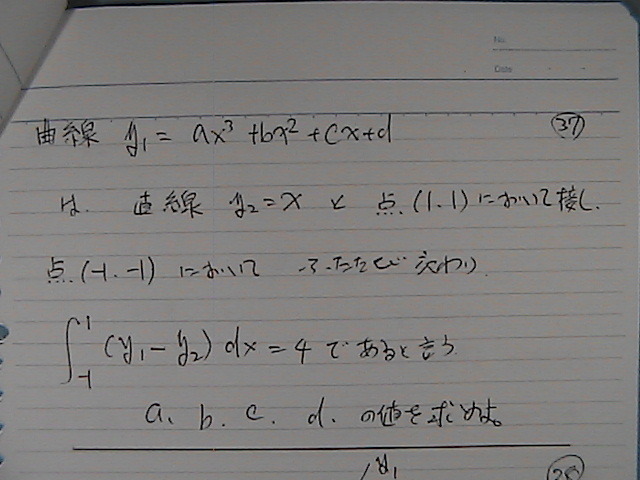 No.
Date
曲線 y₁ = ax³ + bx² + cx + d ㊲
は、直線 y₂ = x と 点(1.1)において接し、
点(-1.-1)において ふたたび交わり
∫₋₁¹ (y₁ - y₂) dx = 4 であると言う
a、b、c、d、の値を求めよ。